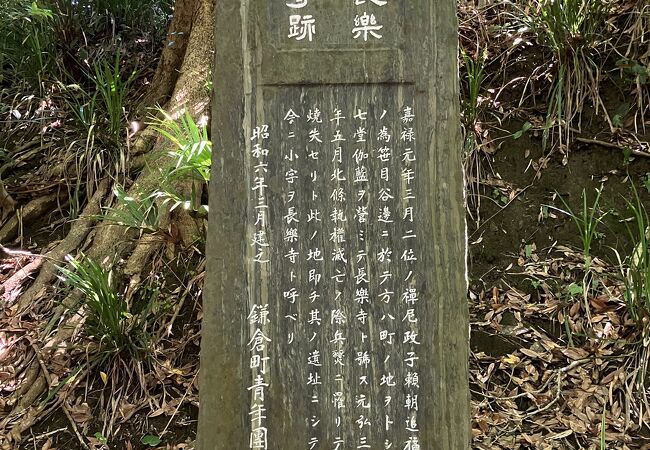 長樂
寺跡
嘉祿元年三月二位ノ禪尼政子賴朝追福
ノ為笹目谷邊ニ於テ方八町ノ地ヲトシ
七堂伽藍ヲ營ミテ長樂寺ト號ス元弘三
年五月北條執權滅亡ノ際兵燹ニ罹リテ
燒失セリト此ノ地即チ其ノ遺址ニシテ
今ニ小字ヲ長樂寺ト呼ベリ
昭和六年三月建之 鎌倉町青年團